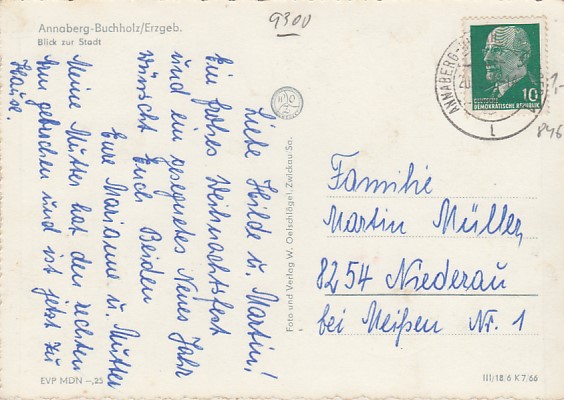 Annaberg-Buchholz/Erzgeb.
Blick zur Stadt
9300
Liebe Hilde u. Martin!
Ein frohes Weihnachtsfest
und ein gesegnetes Neues Jahr
wünscht Euch Beiden
Eure Marianne u. Mutter
Meine Mutter hat den rechten
Arm gebrochen und ist jetzt zu
Hause.
EVP MDN –,25
Foto und Verlag W. Oelschlögel, Zwickau Sa.
ANNABERG-
10
DEUTSCHE
DEMOKRATISCHE REPUBLIK
1,-
846
Familie
Martin Müller
8254 Niederau
bei Meißen Nr. 1
III/18/6 K 7/66